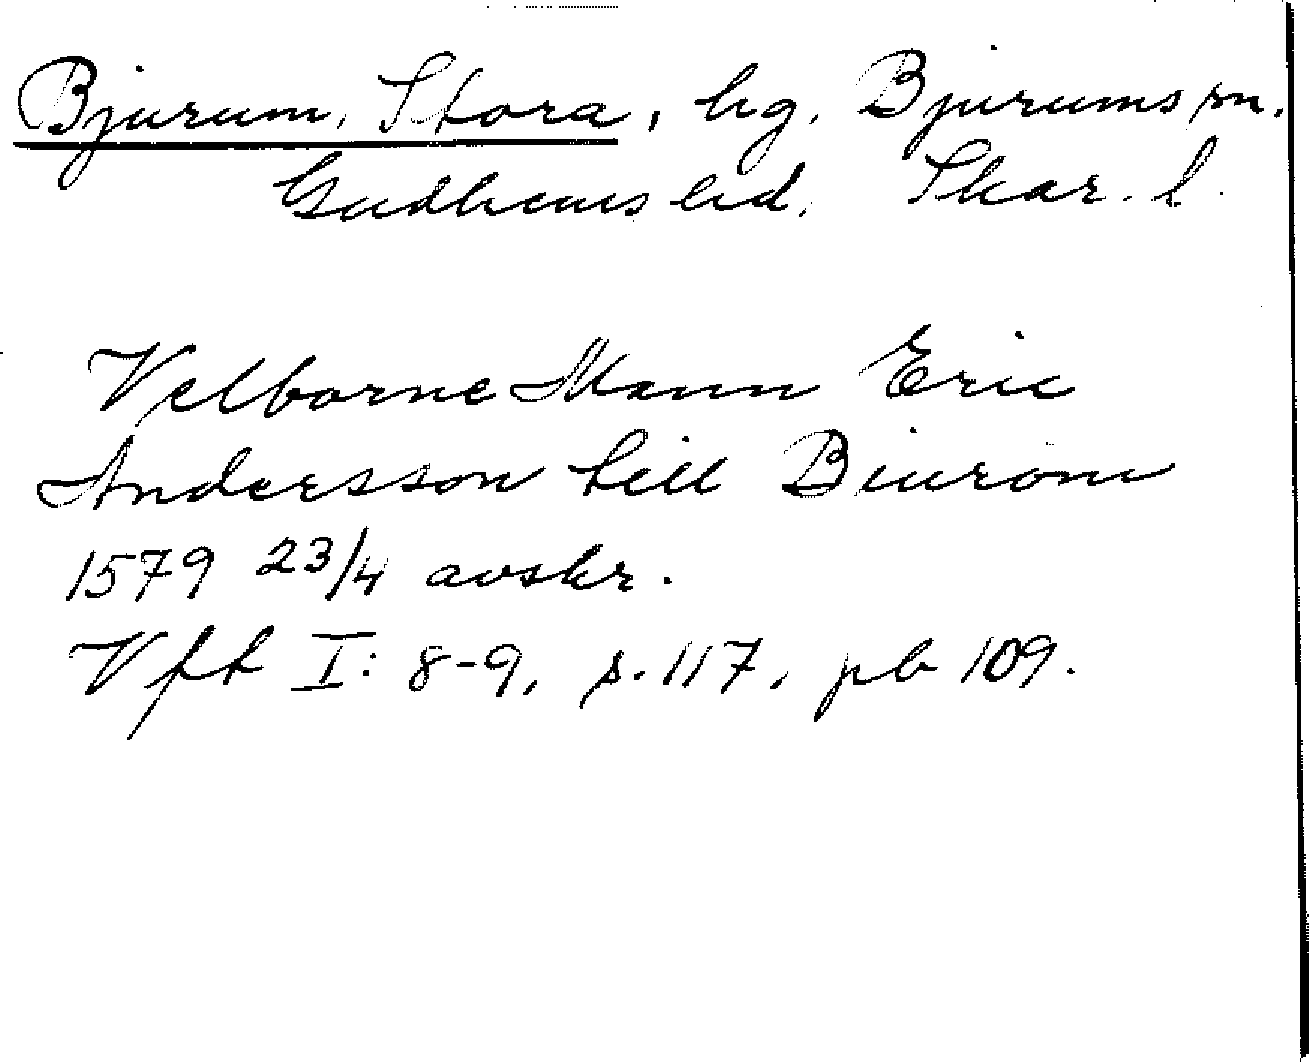 Bjurum, Stora, hg. Bjurums sn.
Gudhems hd. Skar. l.
Velborne Mann Eric
Andersson till Biurom
1579 23/4 avskr.
Vfft I: 8-9, s. 117, pb 109.